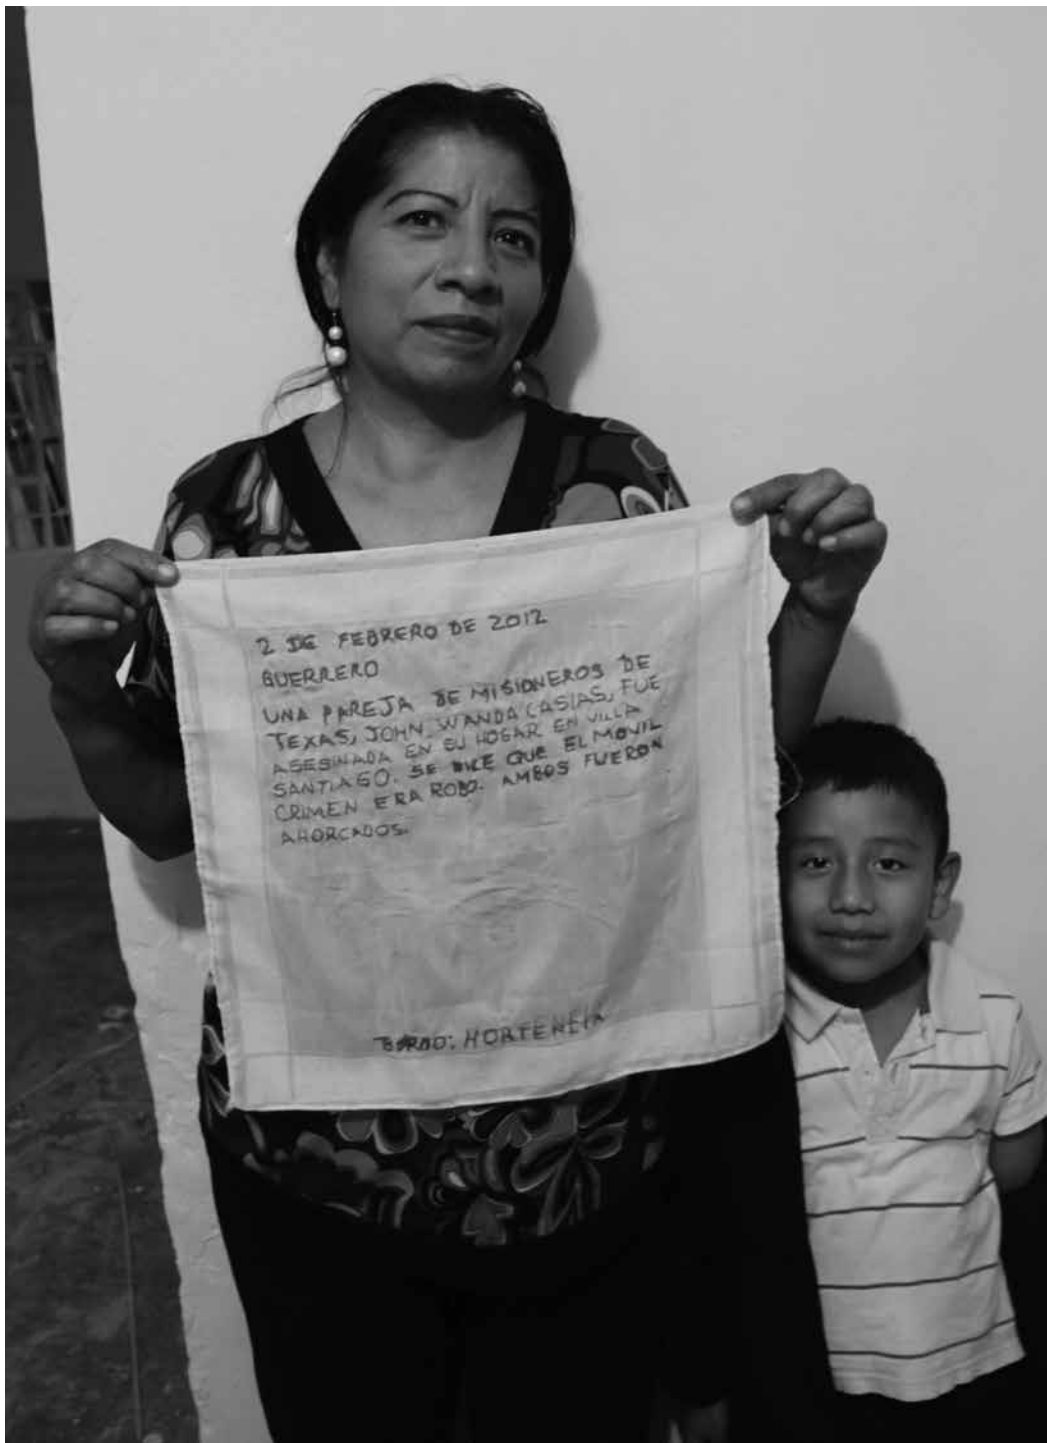 2 DE FEBRERO DE 2012
GUERRERO
UNA PAREJA DE MISIONEROS DE
TEXAS, JOHN, WANDA CASIAS, FUE
ASESINADA EN SU HOGAR EN VILLA
SANTIAGO. SE DICE QUE EL MOVIL
CRIMEN ERA ROBO. AMBOS FUERON
AHORCADOS.
BORDO: HORTENCIA